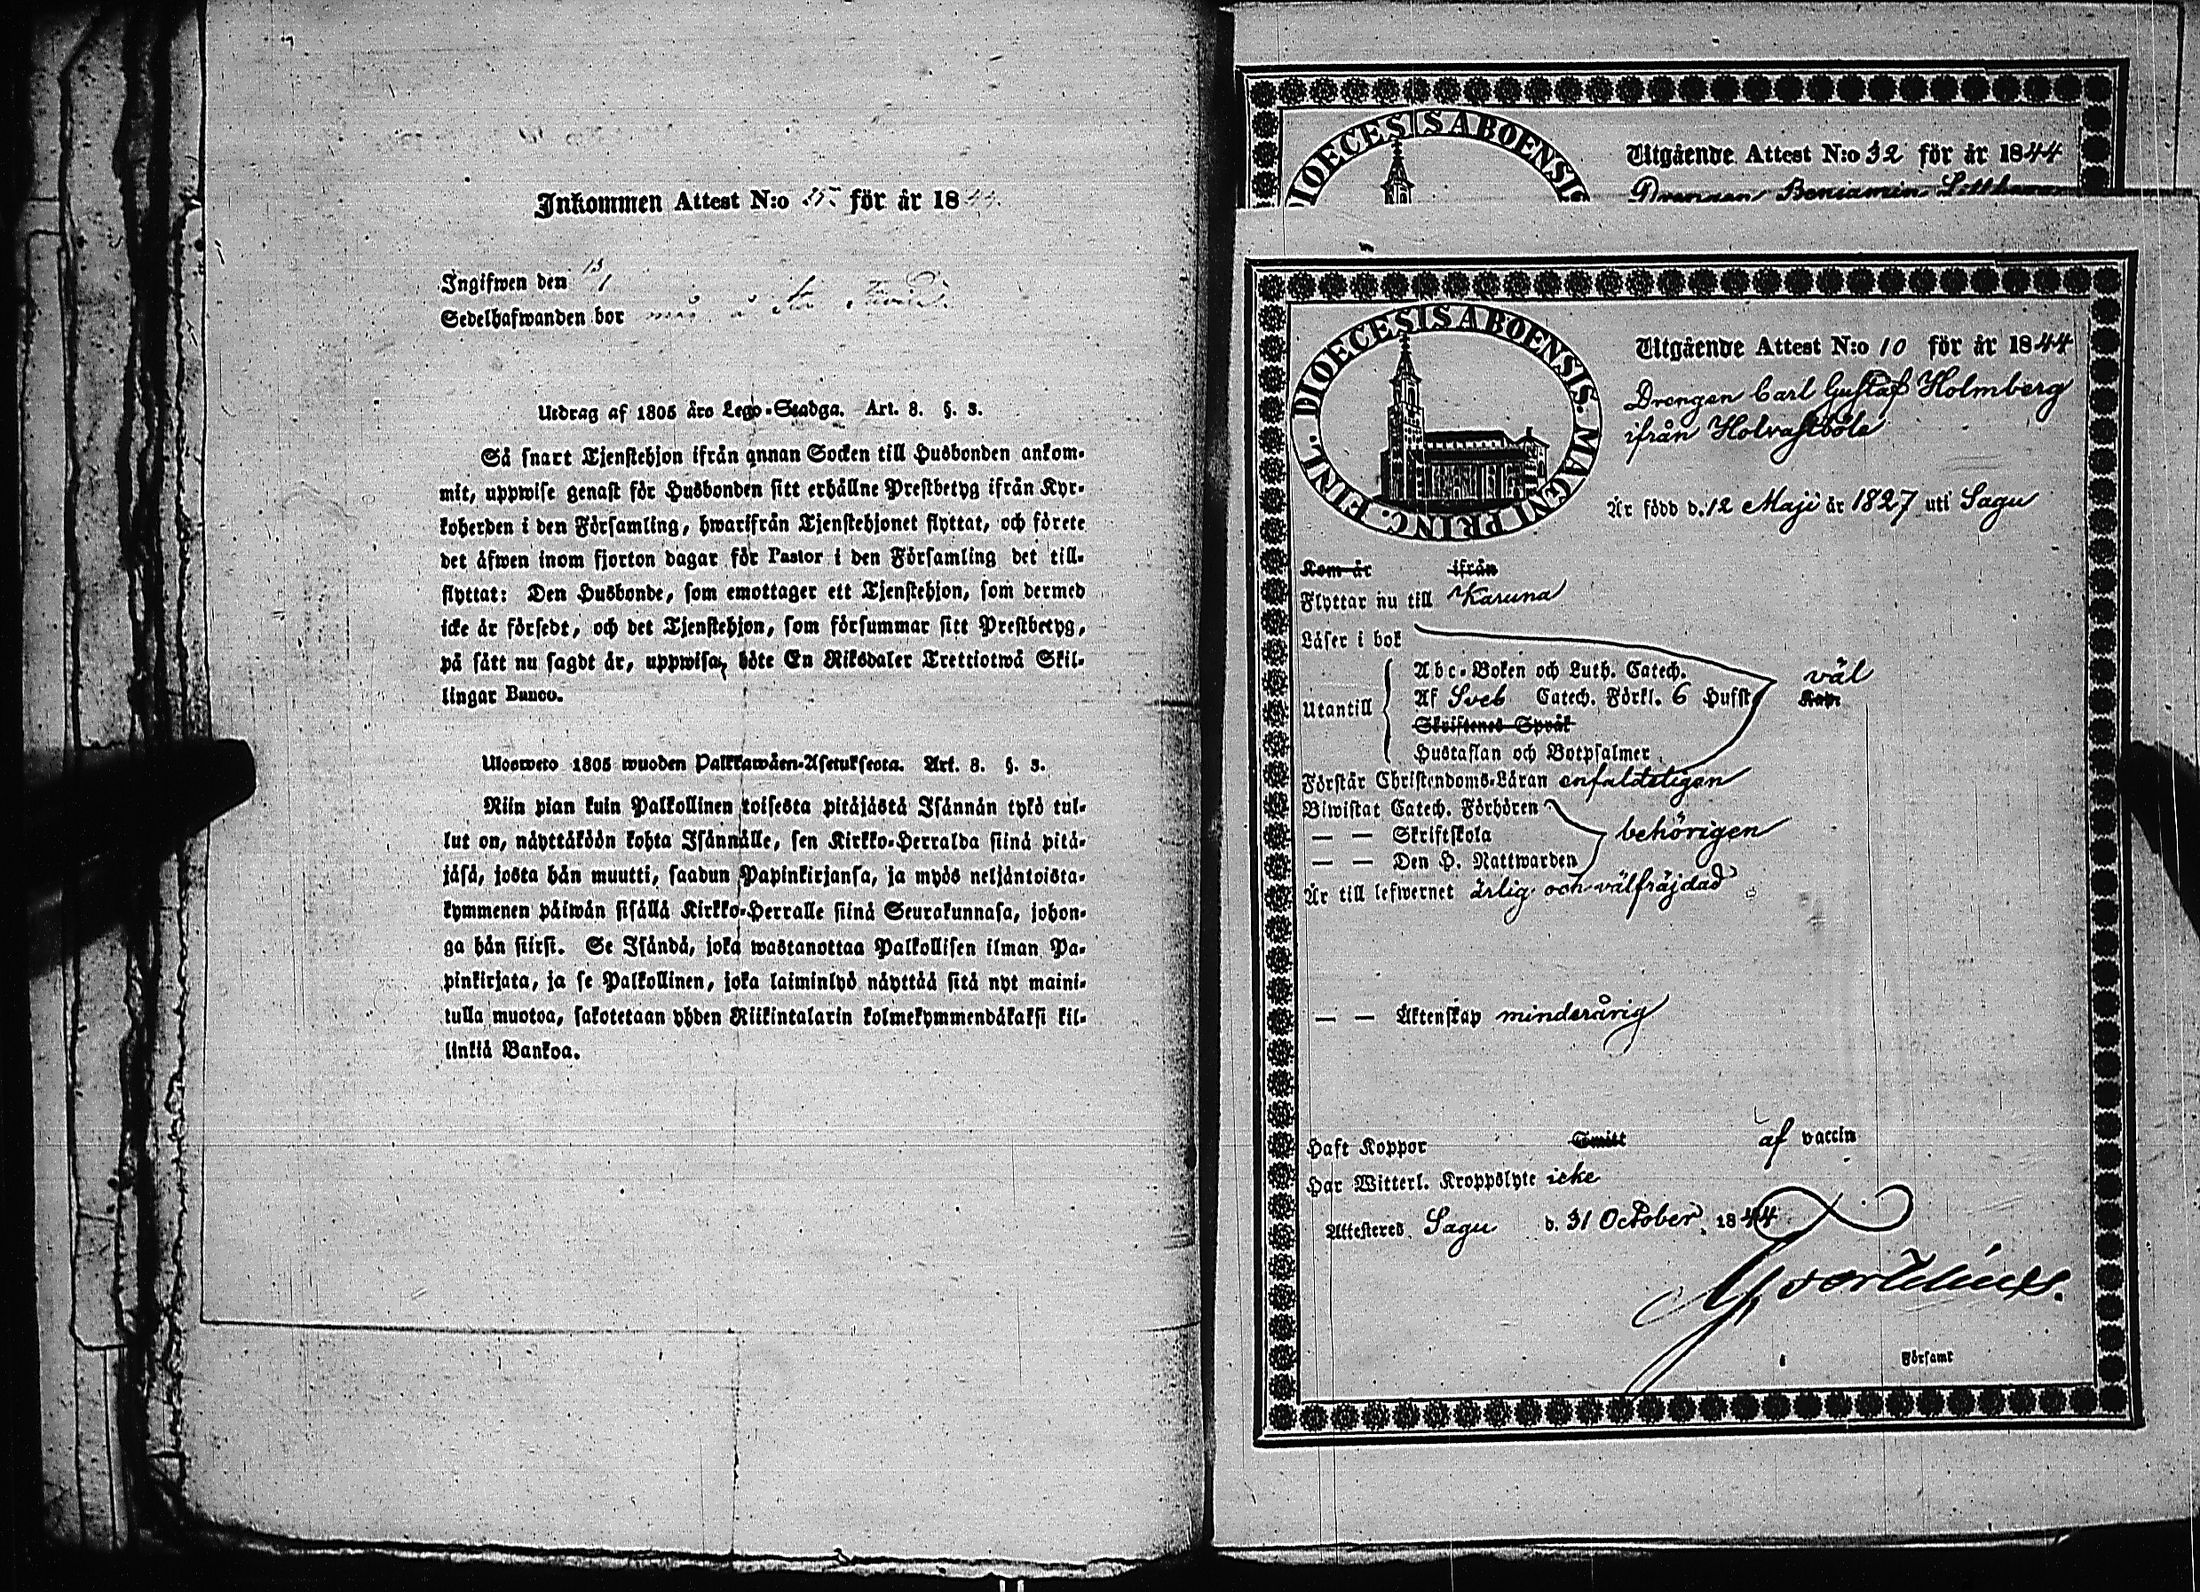 Inkommen Attest N:o för år 1844.
Ingifwen den 13/1
Sedelhafwanden bor
Utdrag af 1805 års Lego-Stadga. Art. 8. §. 3.
Så snart Tjenstehjon ifrån annan Socken till Husbonden ankom-
mit, uppwise genast för Husbonden sitt erhållne Prestbetyg ifrån Kyr-
koherden i den Församling, hwarifrån Tjenstehjonet flyttat, och förete
det äfwen inom fjorton dagar för Pastor i den Församling det till-
flyttat: Den Husbonde, som emottager ett Tjenstehjon, som dermed
icke är försedt, och det Tjenstehjon, som försummar sitt Prestbetyg,
på sätt nu sagdt är, uppwisa, böte En Riksdaler Trettiotwå Skil-
lingar Banco.
Ulosweto 1805 wuoden Palkkawäen-Asetuksesta. Art. 8. §. 3.
Niin pian kuin Palkollinen toisesta pitäjästä Isännän tykö tul-
lut on, näyttäköön kohta Isännälle, sen Kirkko-Herralda siinä pitä-
jäsä, josta hän muutti, saadun Papinkirjansa, ja myös neljäntoista-
kymmenen päiwän sisällä Kirkko-Herralle siinä Seurakunnasa, johon-
ga hän siirsi. Se Isändä, joka wastanottaa Palkollisen ilman Pa-
pinkirjata, ja se Palkollinen, joka laiminlyö näyttää sitä nyt maini-
tulla muotoa, sakotetaan yhden Riikintalarin kolmekymmendäkaksi kil-
linkiä Bankoa.
DIOECESIS ABOENSIS
Utgående Attest N:o 32 för år 1844
Drengen Benjamin
DIOECESIS ABOENSIS. MAGNI PRINC. FINL.
Utgående Attest N:o 10 för år 1844
Drengen Carl Gustaf Holmberg
ifrån Holvastböle
Är född d. 12 Maji år 1827 uti Sagu
Kom år ifrån
Flyttar nu till Karuna
Läser i bok
Abc-Boken och Luth. Catech. väl
Utantill Af Sveb Catech. Förkl. 6 Hufst.
Skriftenes Språk
Hustaflan och Botpsalmer
Förstår Christendoms-Läran enfaldeligen
Biwistat Catech. Förhören
— — Skriftskola behörigen
— — Den H. Nattwarden
Är till lefwernet ärlig och välfräjdad
— — Äktenskap minderårig
Haft Koppor Smitt af vaccin
Har Witterl. Kroppslyte icke
Attesteres Sagu d. 31 October 1844
Församl